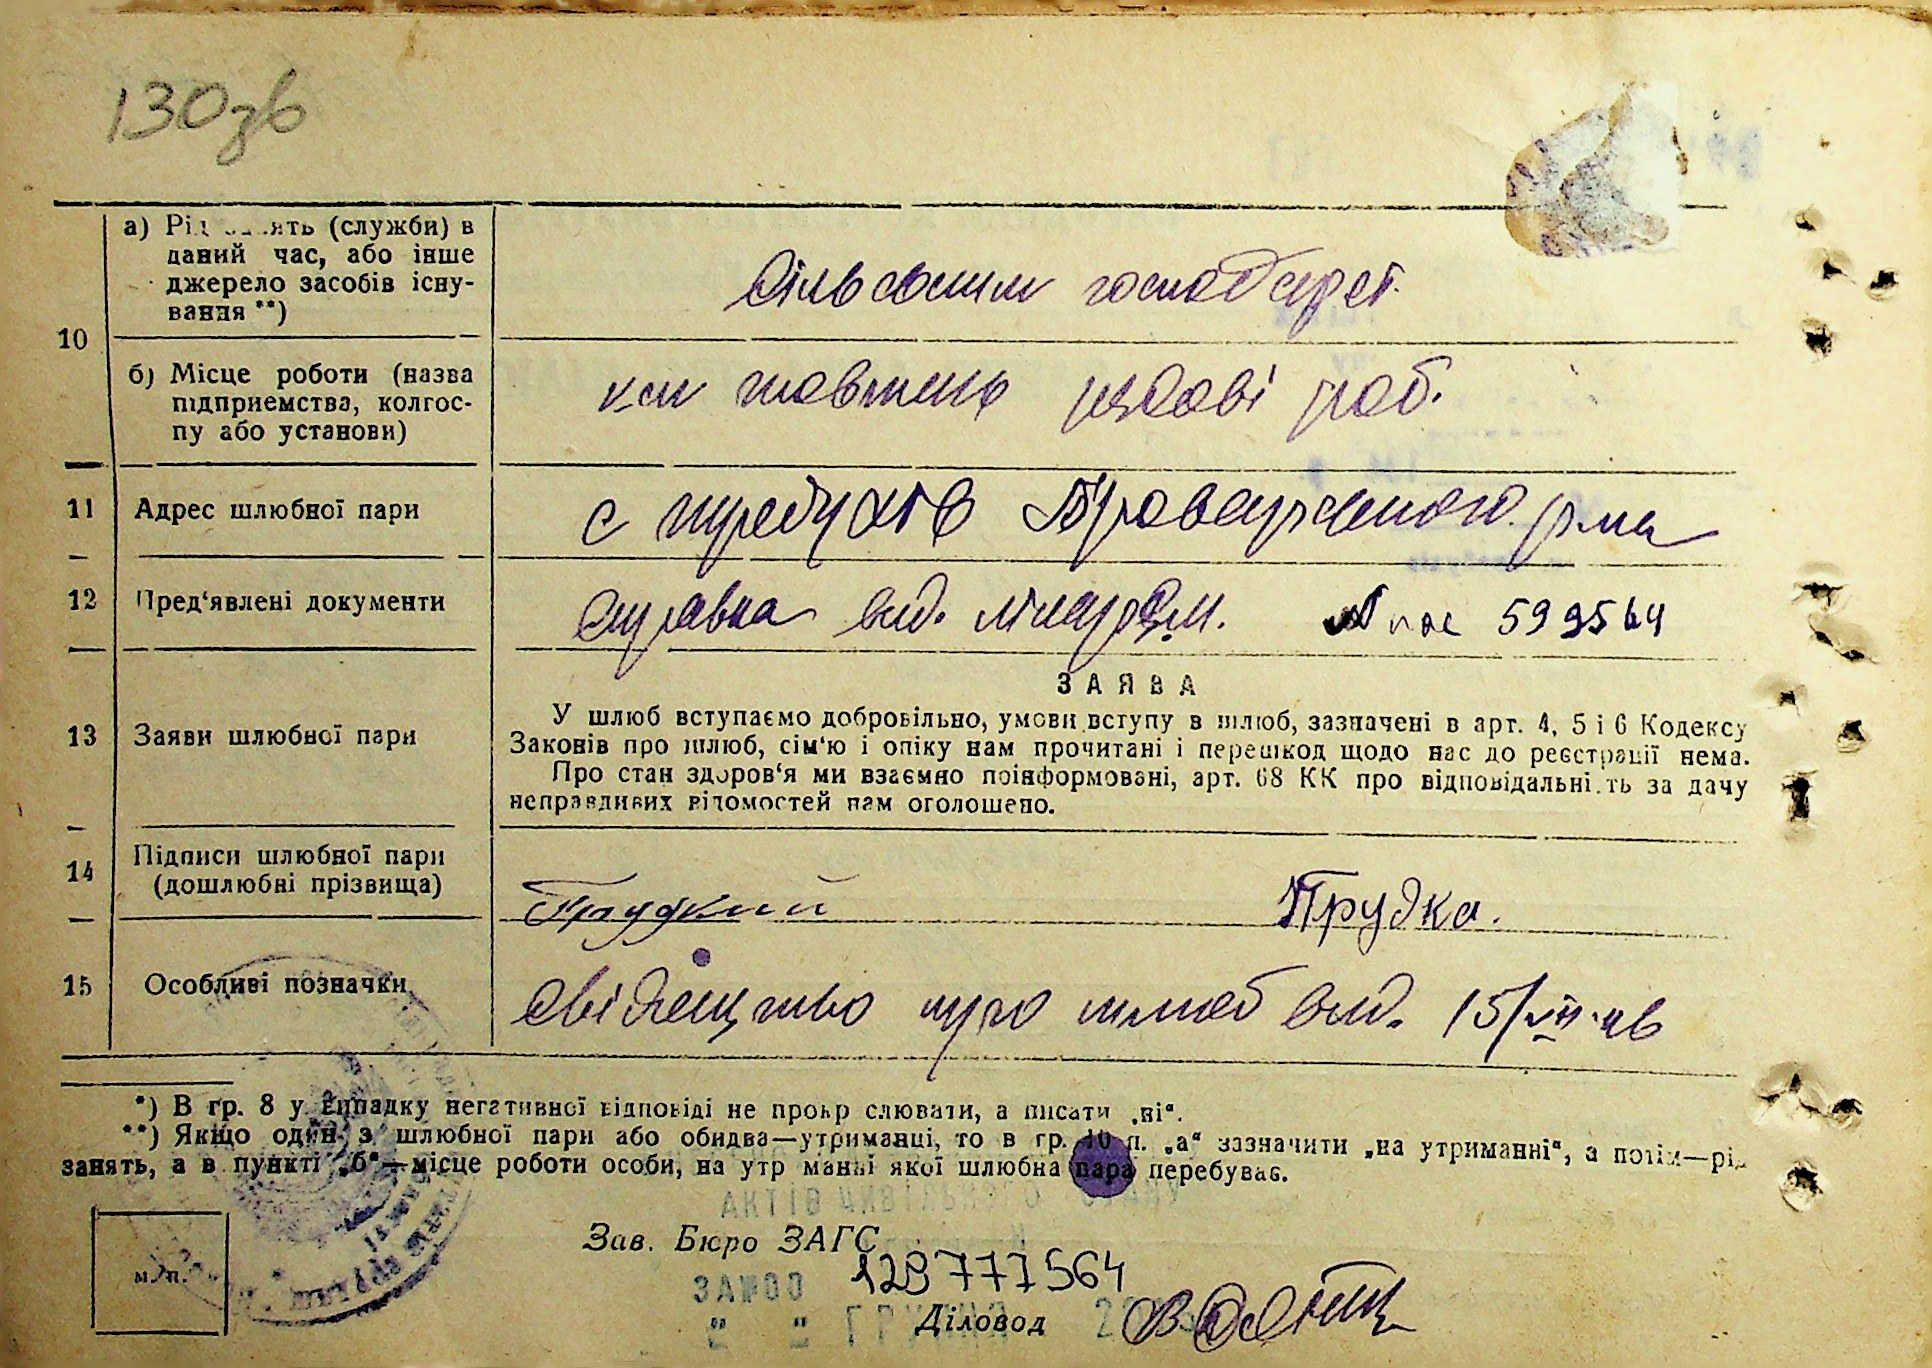 130зв
а) Рід занять (служби) в
даний час, або інше
джерело засобів існу-
вання **)
Сільським господарст.
10
б) Місце роботи (назва
підприємства, колгос-
пу або установи)
жовтень рядові роб.
11 Адрес шлюбної пари
с Требухів Броварського р-на
12 Пред'явлені документи
справка вид. № пас 599564
ЗАЯВА
13 Заяви шлюбної пари
У шлюб вступаємо добровільно, умови вступу в шлюб, зазначені в арт. 4, 5 і 6 Кодексу
Законів про шлюб, сім'ю і опіку нам прочитані і перешкод щодо нас до реєстрації нема.
Про стан здоров'я ми взаємно поінформовані, арт. 68 КК про відповідальність за дачу
неправдивих відомостей нам оголошено.
14 Підписи шлюбної пари
(дошлюбні прізвища)
Прудкий Прудка.
15 Особливі позначки
свідецтво про шлюб вид. 15/VII-46
*) В гр. 8 у випадку негативної відповіді не прокреслювати, а писати „ні“.
**) Якщо один з шлюбної пари або обидва—утриманці, то в гр. 10 п. „а“ зазначити „на утриманні“, а потім—рід
занять, а в пункті „б“—місце роботи особи, на утриманні якої шлюбна пара перебуває.
АКТІВ ЦИВІЛЬНОГО СТАНУ
Зав. Бюро ЗАГС
129777564
м. п.
Діловод